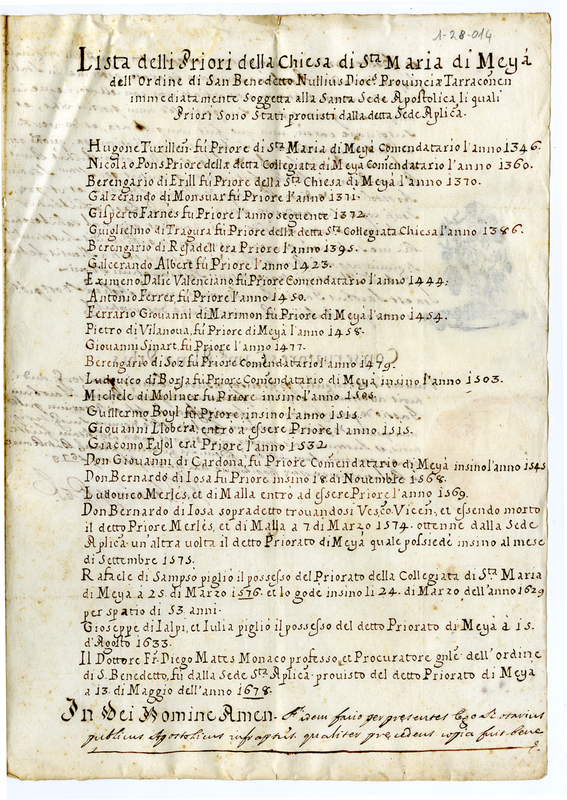 1-28-014
Lista delli Priori della Chiesa di Sta Maria di Meyà
dell'Ordine di San Benedetto Nullius Diocs Provinciæ Tarraconen
immediatamente Soggetta alla Santa Sede Apostolica li quali
Priori Sono Stati provisti dalla detta Sede Aplica.
Hugone Turillen fù Priore di Sta Maria di Meyà Comendatario l'anno 1346.
Nicolao Pons Priore della detta Collegiata di Meyà Comendatario l'anno 1360.
Berengario di Erill fù Priore della Sta Chiesa di Meyà l'anno 1370.
Galzerando di Monsuar fù Priore l'anno 1371.
Gisperto Farnes fù Priore l'anno seguente 1372.
Guiglielmo di Tragura fù Priore della detta Sta Collegiata Chiesa l'anno 1386.
Berengario di Resadell era Priore l'anno 1395.
Galcerando Albert fù Priore l'anno 1423.
Eximeno Dalic Valenciano fù Priore Comendatario l'anno 1444.
Antonio Ferrer fù Priore l'anno 1450.
Ferrario Giovanni di Marimon fù Priore di Meyà l'anno 1454.
Pietro di Vilanova, fù Priore di Meyà l'anno 1458.
Giovanni Sinart fù Priore l'anno 1477.
Berengario di Soz fù Priore Comendatario l'anno 1479.
Ludovico di Borja fù Priore Comendatario di Meyà insino l'anno 1503.
Michele di Moliner fù Priore insino l'anno
Guillermo Boyl fù Priore, insino l'anno 1515.
Giovanni Llobera, entrò a essere Priore l'anno 1515.
Giacomo Fajol era Priore l'anno 1532
Don Giovanni di Cardona, fù Priore Comendatario di Meyà insino l'anno 1545
Don Bernardo di Iosa fù Priore insino 18 di Novembre 1568.
Ludovico Merles, et di Malla entro ad essere Priore l'anno 1569.
Don Bernardo di Iosa sopradetto trovandosi Vesco. Vicen, et essendo morto
il detto Priore Merles, et di Malla a 7 di Marzo 1574. ottenne dalla Sede
Aplica un'altra volta il detto Priorato di Meyà quale possiedè insino al mese
di Settembre 1575.
Rafaele di Sampso piglio il possesso del Priorato della Collegiata di Sta Maria
di Meyà à 25. di Marzo 1576. et lo gode insino li 24. di Marzo dell'anno 1629
per spatio di 53. anni.
Gioseppe di Ialpi, et Iulia pigliò il possesso del detto Priorato di Meyà à 15.
d'Agosto 1633.
Il Dottore Fr. Diego Mattes Monaco professo, et Procuratore gnle dell'ordine
di S. Benedetto, fù dalla Sede Sta Aplica provisto del detto Priorato di Meyà
a 13. di Maggio dell'anno 1678.
In Dei Nomine Amen. Fidem facio per presentes Ego Notarius
publicus Apostolicus infraptus qualiter precedens copia fuit bene